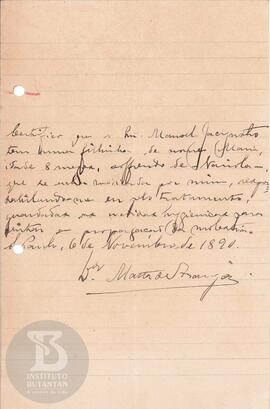 Certifico que o Snr. Manoel Jacyntho
tem uma filhinha de nome Maria,
de 8 mezes, soffrendo de Variola
que se acha medicada por mim, respon-
sabilisando-me eu pelo tratamento,
guardadas as medidas hygienicas para
evitar a propagação da molestia.
S. Paulo, 6 de Novembro de 1890.
Dr.
INSTITUTO
BUTANTAN